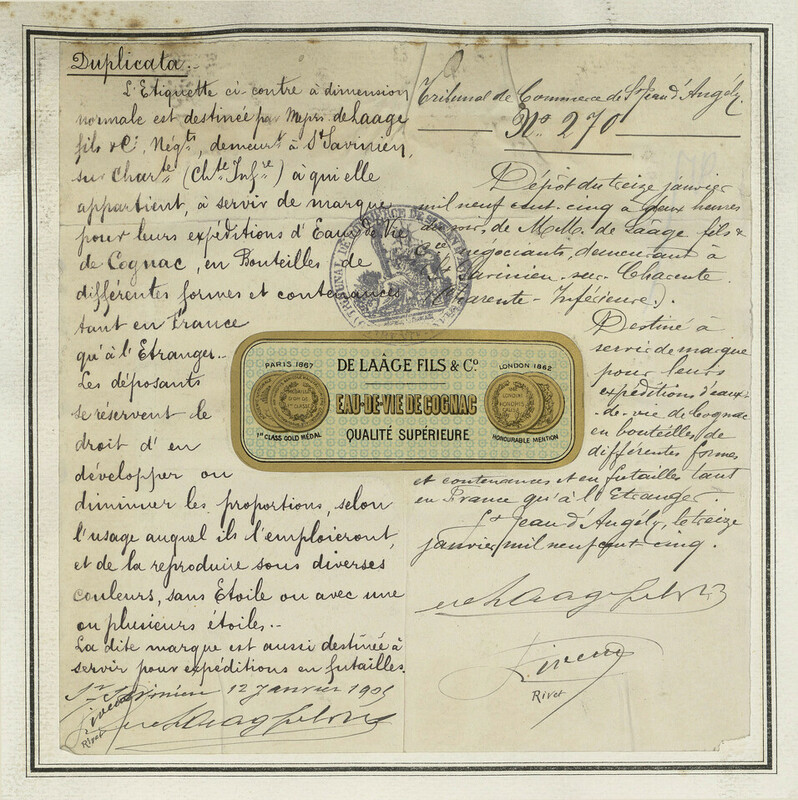 Duplicata.
L'Etiquette ci-contre à dimension
normale est destinée par Messrs. de Laage
fils & Cie, Négts, demeurt à St Savinien,
sur Charte (Chte Infre) à qui elle
appartient, à servir de marque
pour leurs expéditions d'Eaux de Vie
de Cognac, en Bouteilles de
différentes formes et contenances
tant en France
qu'à l'Etranger.
Les déposants
se réservent le
droit d'en
développer ou
diminuer les proportions, selon
l'usage auquel ils l'emploieront,
et de la reproduire sous diverses
couleurs, sans Etoile ou avec une
ou plusieurs étoiles.
La dite marque est aussi destinée à
servir pour expéditions en futailles.
St Savinien 12 Janvier 1905
Rivet
Tribunal de Commerce de St Jean d'Angély.
No 270
Dépôt du treize janvier
mil neuf cent cinq à deux heures
du soir, de M.M. de Laage fils &
Cie négociants, demeurant à
St Savinien-sur-Charente
(Charente-Inférieure).
Destiné à
servir de marque
pour leurs
expéditions d'eaux-
de-vie de Cognac
en bouteilles de
différentes formes
et contenances et en futailles tant
en France qu'à l'Etranger.
St Jean d'Angély, le treize
janvier mil neuf cent cinq.
Rivet
TRIBUNAL DE COMMERCE DE ST JEAN D'
PARIS 1867
1er CLASS GOLD MEDAL
DE LAÂGE FILS & Co
EAU-DE-VIE DE COGNAC
QUALITÉ SUPÉRIEURE
LONDON 1862
HONOURABLE MENTION